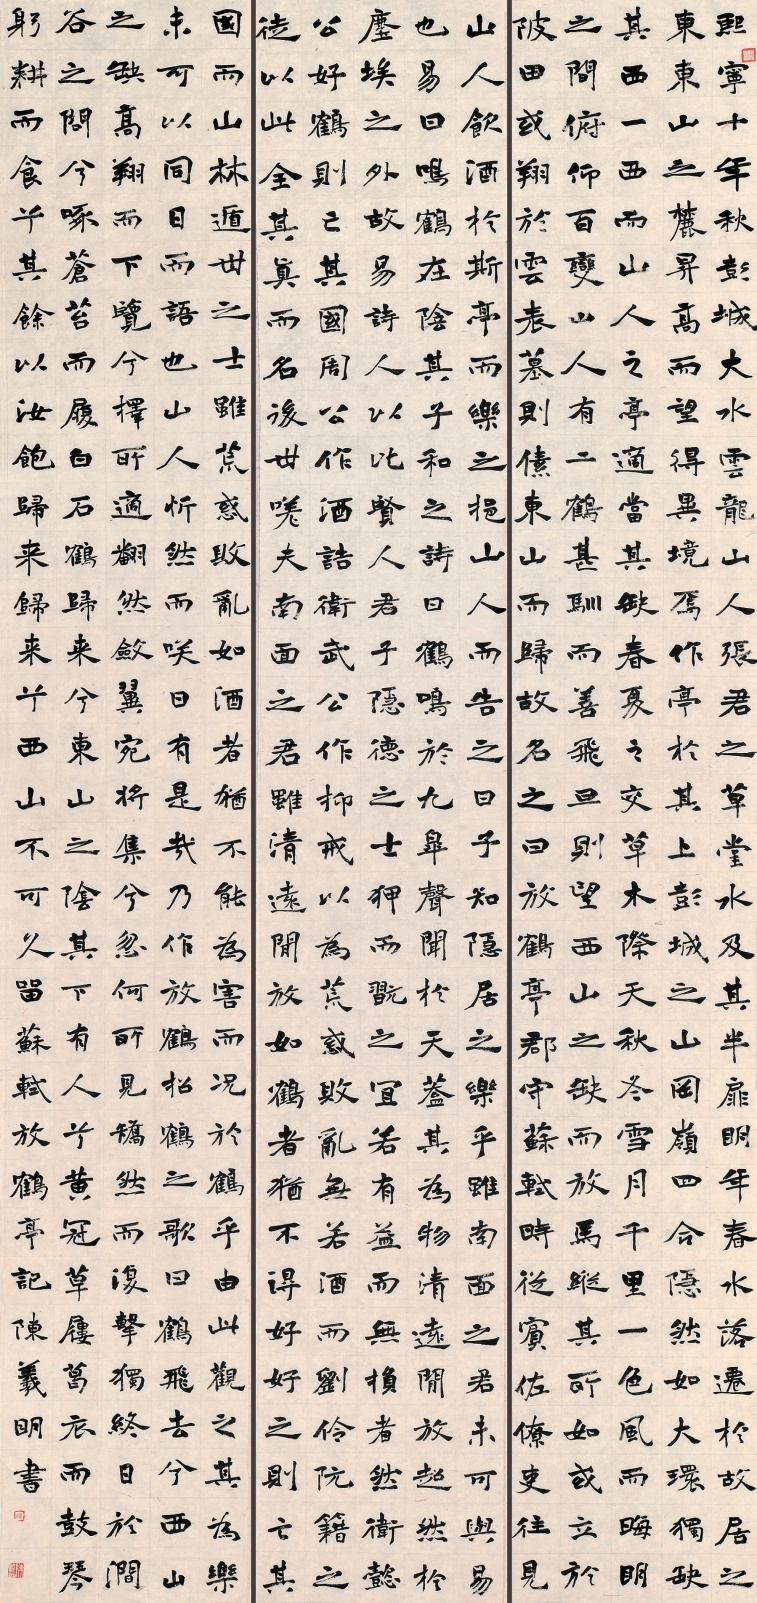 熙寧十年秋彭城大水雲龍山人張君之草堂水及其半扉明年春水落遷於故居之
東東山之麓昇高而望得異境焉作亭於其上彭城之山岡嶺四合隱然如大環獨缺
其西一西而山人之亭適當其缺春夏之交草木際天秋冬雪月千里一色風而晦明
之間俯仰百變山人有二鶴甚馴而善飛旦則望西山之缺而放焉縱其所如或立於
陂田或翔於雲表墓則傃東山而歸故名之曰放鶴亭郡守蘇軾時從賓佐僚吏往見
山人飲酒於斯亭而樂之挹山人而告之曰子知隱居之樂乎雖南面之君未可與易
也易曰鳴鶴在陰其子和之詩曰鶴鳴於九皋聲聞於天蓋其為物清遠閒放超然於
塵埃之外故易詩人以比賢人君子隱德之士狎而翫之宜若有益而無損者然衛懿
公好鶴則亡其國周公作酒誥衛武公作抑戒以為荒惑敗亂無若酒而劉伶阮籍之
徒以此全其真而名後世嗟夫南面之君雖清遠閒放如鶴者猶不得好好之則亡其
國而山林遁世之士雖荒惑敗亂如酒者猶不能為害而況於鶴乎由此觀之其為樂
未可以同日而語也山人忻然而笑曰有是哉乃作放鶴招鶴之歌曰鶴飛去兮西山
之缺高翔而下覽兮擇所適翻然斂翼宛將集兮忽何所見矯然而復擊獨終日於澗
谷之間兮啄蒼苔而履白石鶴歸来兮東山之陰其下有人兮黃冠草屨葛衣而鼓琴
躬耕而食兮其餘以汝飽歸来歸来兮西山不可久留蘇軾放鶴亭記陳義明書